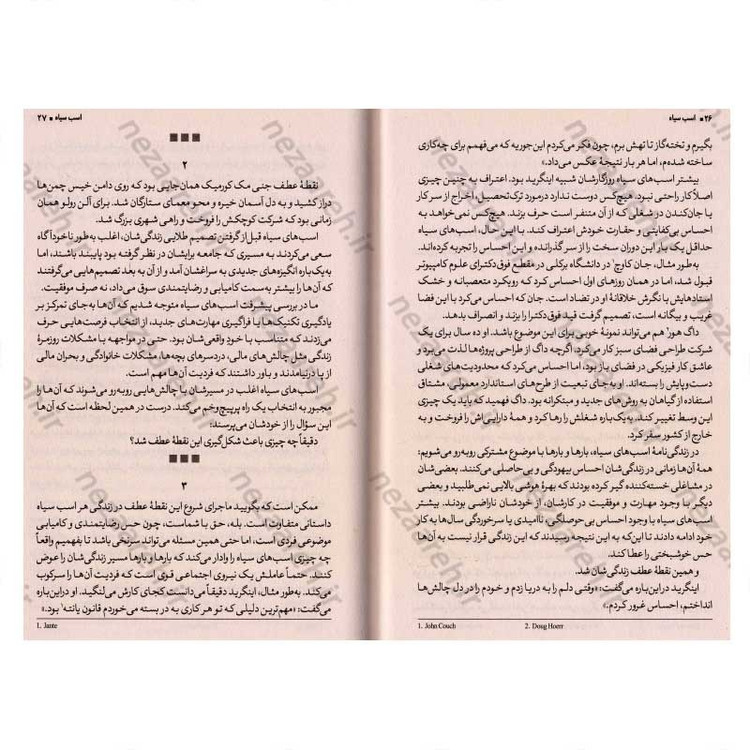 ۲۶ ■ اسب سیاه
بگیرم و تخته‌گاز تا تهش برم، چون فکر می‌کردم این‌جوریه که می‌فهمم برای چه‌کاری
ساخته شده‌م، اما هر بار نتیجهٔ عکس می‌داد.»
بیشتر اسب‌های سیاه روزگارشان شبیه اینگرید بود. اعتراف به چنین چیزی
اصلاً کار راحتی نبود. هیچ‌کس دوست ندارد درمورد ترک‌تحصیل، اخراج از سر کار
یا جان‌کندن در شغلی که از آن متنفر است حرف بزند. هیچ‌کس نمی‌خواهد به
احساس بی‌کفایتی و حقارت خودش اعتراف کند. با این حال، اسب‌های سیاه
حداقل یک بار این دوران سخت را از سر گذرانده و این احساس را تجربه کرده‌اند.
به‌طور مثال، جان کاوچ¹ در دانشگاه برکلی در مقطع فوق‌دکترای علوم کامپیوتر
قبول شد، اما در همان روزهای اول احساس کرد که رویکرد متعصبانه و خشک
استادهایش با نگرش خلاقانهٔ او در تضاد است. جان که احساس می‌کرد با این فضا
غریب و بیگانه است، تصمیم گرفت قید فوق‌دکترا را بزند و انصراف بدهد.
داگ هور² هم می‌تواند نمونهٔ خوبی برای این موضوع باشد. او ده سال برای یک
شرکت طراحی فضای سبز کار می‌کرد. اگرچه داگ از طراحی پروژه‌ها لذت می‌برد و
عاشق کار فیزیکی در فضای باز بود، اما احساس می‌کرد که محدودیت‌های شغلی
دست‌وپایش را بسته‌اند. او به‌جای تبعیت از طرح‌های استاندارد معمولی، مشتاق
استفاده از گیاهان به روش‌های جدید و مبتکرانه بود. داگ فهمید که باید یک چیزی
این وسط تغییر کند. به‌یک‌باره شغلش را رها کرد و همهٔ دارایی‌اش را فروخت و به
خارج از کشور سفر کرد.
در زندگی‌نامهٔ اسب‌های سیاه، بارها و بارها با موضوع مشترکی روبه‌رو می‌شویم:
همهٔ آن‌ها زمانی در زندگی‌شان احساس بیهودگی و بی‌حاصلی می‌کنند. بعضی‌شان
در مشاغلی خسته‌کننده گیر کرده بودند که بهرهٔ هوشی بالایی نمی‌طلبید و بعضی
دیگر با وجود مهارت و موفقیت در کارشان، از خودشان ناراضی بودند. بیشتر
اسب‌های سیاه با وجود احساس بی‌حوصلگی، ناامیدی یا سرخوردگی سال‌ها به کار
خود ادامه دادند تا این‌که به این نتیجه رسیدند که این زندگی قرار نیست به آن‌ها
حس خوشبختی را عطا کند.
و همین نقطهٔ عطف زندگی‌شان شد.
اینگرید در این‌باره می‌گفت: «وقتی دلم را به دریا زدم و خودم را در دل چالش‌ها
انداختم، احساس غرور کردم.»
1. John Couch 2. Doug Hoerr
اسب سیاه ■ ۲۷
■■■
۲
نقطهٔ عطف جنی مک کورمیک همان‌جایی بود که روی دامن خیس چمن‌ها
دراز کشید و به دل آسمان خیره و محو معمای ستارگان شد. برای آلن رولو همان
زمانی بود که شرکت کوچکش را فروخت و راهی شهری بزرگ شد.
اسب‌های سیاه قبل از گرفتن تصمیم طلایی زندگی‌شان، اغلب به‌طور ناخودآگاه
سعی می‌کردند به مسیری که جامعه برایشان در نظر گرفته بود پایبند باشند، اما
به‌یک‌باره انگیزه‌های جدیدی به سراغشان آمد و از آن به بعد تصمیم‌هایی می‌گرفتند
که آن‌ها را بیشتر به‌سمت کامیابی و رضایتمندی سوق می‌داد، نه صرف موفقیت.
ما در بررسی پیشرفت اسب‌های سیاه متوجه شدیم که آن‌ها به‌جای تمرکز بر
یادگیری تکنیک‌ها یا فراگیری مهارت‌های جدید، از انتخاب فرصت‌هایی حرف
می‌زدند که متناسب با خود واقعی‌شان بود. حتی در مواجهه با مشکلات روزمرهٔ
زندگی مثل چالش‌های مالی، دردسرهای بچه‌ها، مشکلات خانوادگی و بحران مالی
از پا درنیامدند و باور داشتند که فردیت آن‌ها مهم است.
اسب‌های سیاه اغلب در مسیرشان با چالش‌هایی روبه‌رو می‌شوند که آن‌ها را
مجبور به انتخاب یک راه پرپیچ‌وخم می‌کند. درست در همین لحظه است که آن‌ها
این سؤال را از خودشان می‌پرسند:
دقیقاً چه چیزی باعث شکل‌گیری این نقطهٔ عطف شد؟
■■■
۳
ممکن است که بگویید ماجرای شروع این نقطهٔ عطف در زندگی هر اسب سیاه
داستانی متفاوت است. بله، حق با شماست، چون حس رضایتمندی و کامیابی
موضوعی فردی است. اما حتی همین مسئله می‌تواند سرنخی باشد تا بفهمیم واقعاً
چه چیزی اسب‌های سیاه را وادار می‌کند که بارها و بارها مسیر زندگی‌شان را عوض
کنند. حتماً عاملش یک نیروی اجتماعی قوی است که فردیت آن‌ها را سرکوب
می‌کند. به‌طور مثال، اینگرید دقیقاً می‌دانست کجای کارش می‌لنگید. او در این‌باره
می‌گفت: «مهم‌ترین دلیلی که تو هر کاری به در بسته می‌خوردم قانون یانته¹ بود.»
1. Jante
nezareh.ir